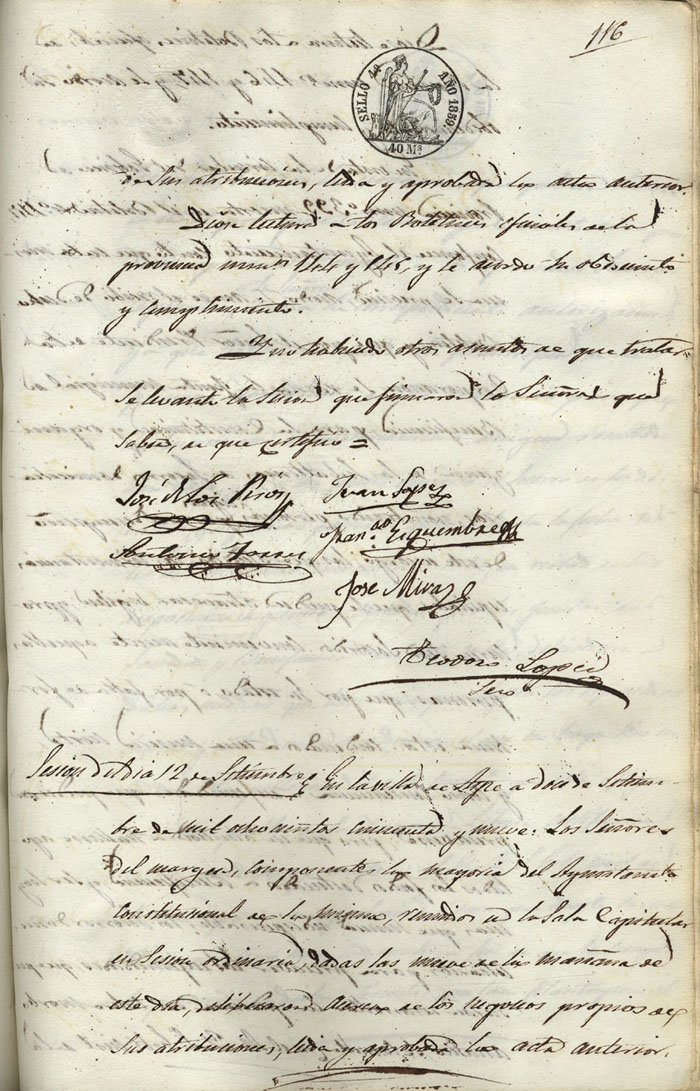 116
SELLO 4º AÑO 1859
40 Ms
de sus atribuciones, leida y aprobada la acta anterior.
Diose lectura a los Boletines oficiales de la
provincia nums 144 y 145, y se acordo su
y cumplimiento.
Y no habiendo otros asuntos de que tratar
se levanto la sesion que firmaron los Señores que
saben, de que certifico =
José de los Rios Juan Lopez
Franco Esquembre
Antonio Torres
Jose Mira
Teodoro Lopez
Srio
Sesion del dia 12 de Setiembre En la villa de Aspe a doce de Setiem-
bre de mil ochocientos cincuenta y nueve: Los Señores
del margen, componentes la mayoria del Ayuntamto
constitucional de la misma, reunidos en la Sala Capitular
en Sesion ordinaria, dadas las nueve de la mañana de
este dia, deliberaron acerca de los negocios propios de
sus atribuciones, leida y aprobada la acta anterior.